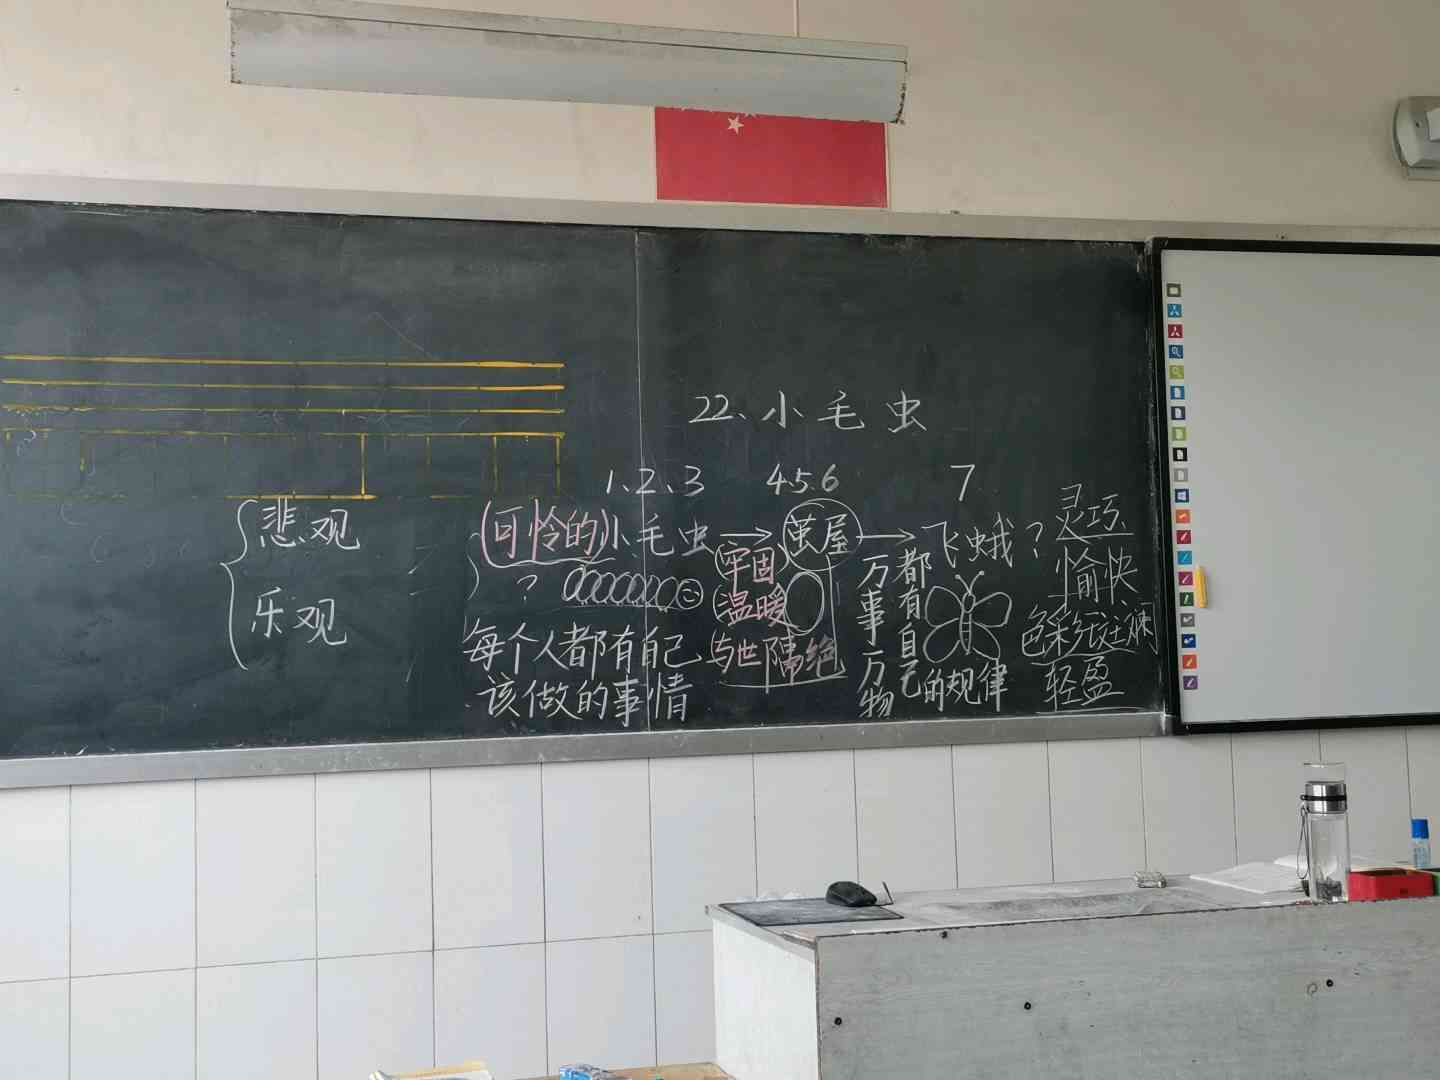 22、小毛虫
1、2、3
4.5.6
7
悲观
乐观
(可怜的)小毛虫
?
每个人都有自己
该做的事情
茧屋
牢固
温暖
与世隔绝
万事万物
都有自己
的规律
飞蛾?
灵巧
愉快
轻盈